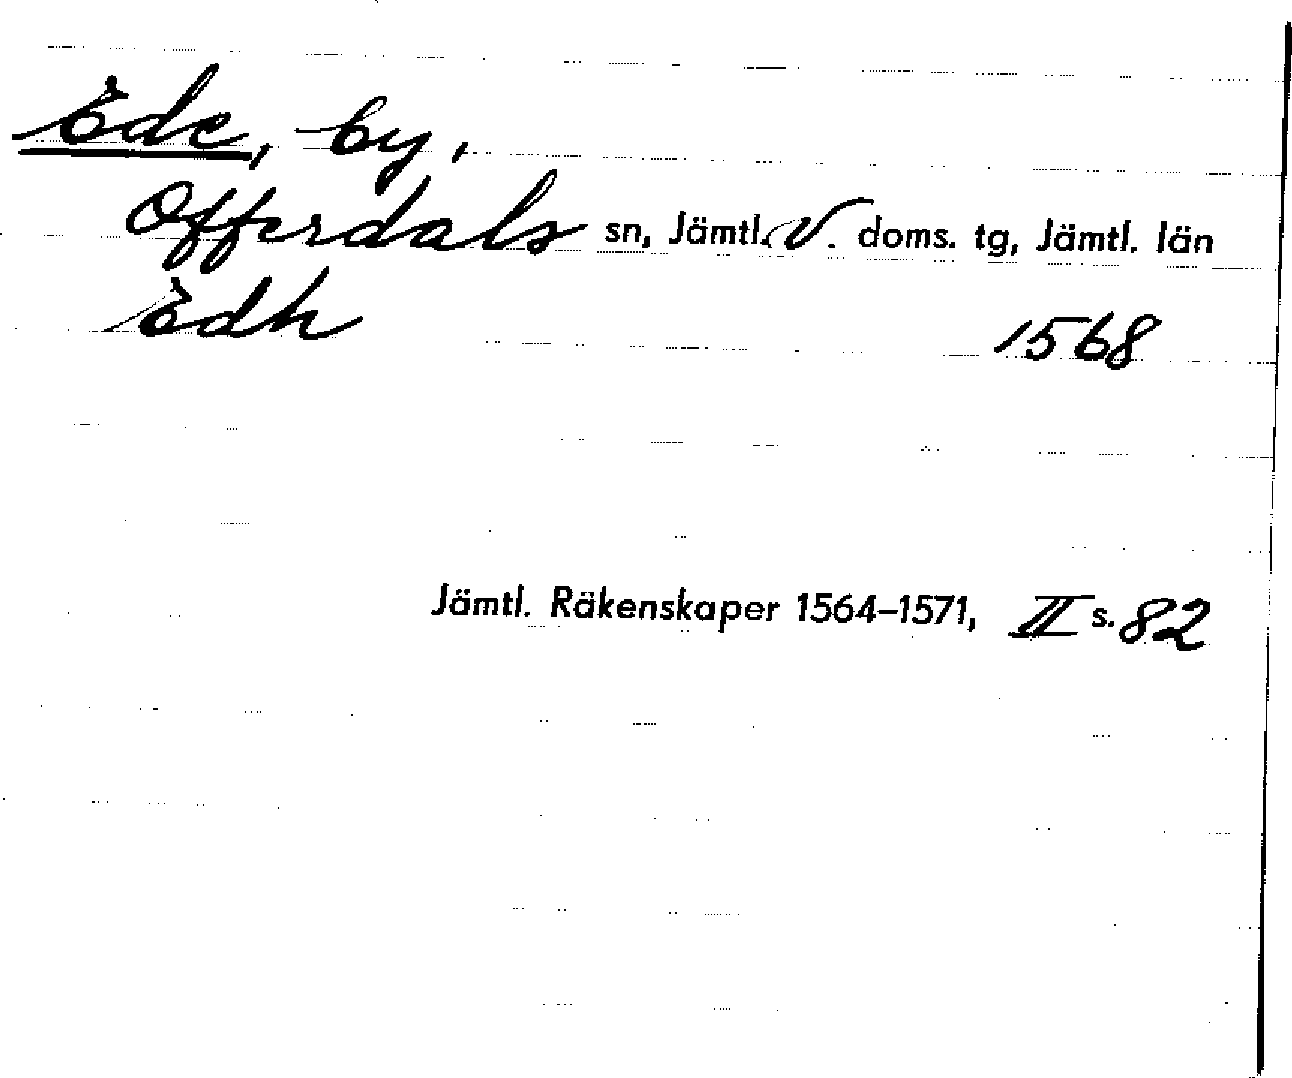 Ede, by,
Offerdals sn, Jämtl. V. doms. tg, Jämtl. län
Edh 1568
Jämtl. Räkenskaper 1564–1571, II s. 82